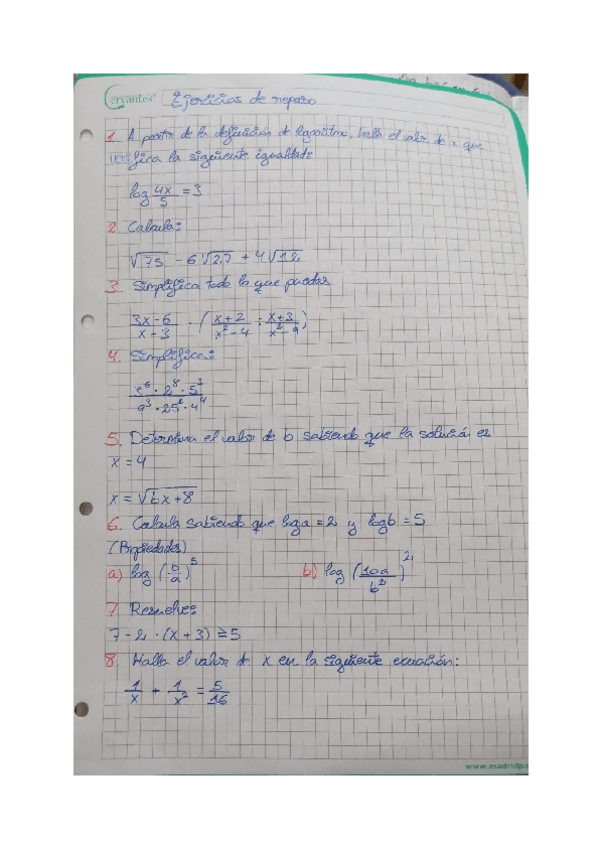 Cervantes Ejercicios de repaso
1. A partir de la definición de logaritmo, halla el valor de x que
verifica la siguiente igualdad:
log 4x/5 = 3
2. Calcula:
√75 - 6√27 + 4√12
3. Simplifica todo lo que puedas
3x-6/x-3 · (x+2/x²-4 : x+3/x²-9)
4. Simplifica:
3⁶·2⁸·5³/9³·25²·4⁴
5. Determina el valor de b sabiendo que la solución es
x = 4
x = √bx+8
6. Calcula sabiendo que log a = 2 y log b = 5
(Propiedades)
a) log (b/a)⁵ b) log (10a/b²)²
7. Resuelve:
7-2·(x+3) ≥ 5
8. Halla el valor de x en la siguiente ecuación:
1/x + 1/x² = 5/16
www.madridpa